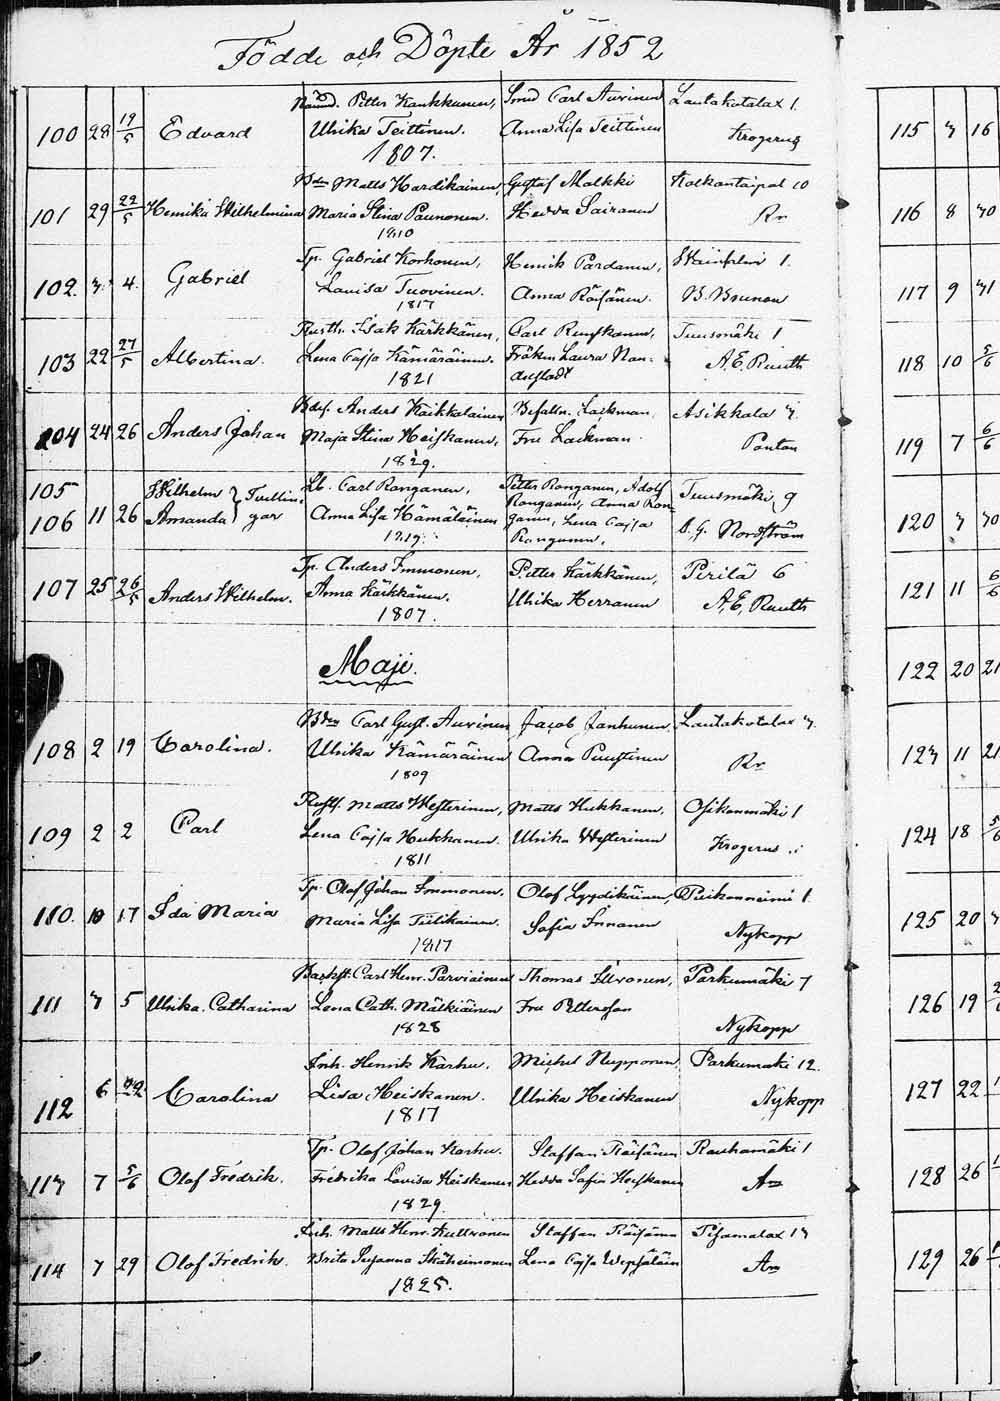 Födde och Döpte År 1852
Nämd. Petter Kankkunen, Smed Carl Auvinen Lautakotalax 1.
100 28 19/5 Edvard Ulrika Teittinen. Anna Lisa Teittinen Krogerus
1807.
Bdn Matts Hardikainen, Gustaf Malkki Kolkontaipal 10
101 29 22/5 Henrika Wilhelmina Maria Stina Paunonen. Hedda Sairanen Rr
1810
Tp. Gabriel Korhonen, Henrik Pardanen, 1.
102. 3 4. Gabriel Lovisa Tuovinen. Anna Räisänen. B. Brunou
1817
Rusth. Isak Kärkkänen, Carl Runskanen, Tuusmäki 1
103 22 27/5 Albertina. Lena Cajsa Kämäräinen. Fröken Laura Non= A. E. Ruuth
1821
Anders Kaikkalainen Befalln. Lackman, Asikkala 3.
104 24 26 Anders Johan Maja Stina Heiskanen, Fru Lackman. Pontan
1829.
105 Wilhelm } Tvillin= Lb. Carl Ronganen, Petter Ronganen, Adolf Tuusmäki 9
Ronganen, Anna Ron=
106 11 26 Amanda } gar Anna Lisa Hämäläinen ganen, Lena Cajsa A. G. Nordström
1819. Ronganen.
Tp. Anders Immonen, Petter Kärkkänen, Pirilä 6
107 25 26/5 Anders Wilhelm. Anna Kärkkänen. Ulrika Herranen A. E. Ruuth
1807.
Maji.
Bdn Carl Gust. Auvinen Jacob Janhunen, Lautakotalax 3.
108 2 19 Carolina. Ulrika Kämäräinen Anna Puustinen Rr
1809
Rusth. Matts Westerinen, Matts Hukkanen. Osikonmäki 1
109 2 2 Carl Lena Cajsa Hukkanen. Ulrika Westerinen Krogerus
1811
Tp. Olof Johan Immonen. Olof Lyydikäinen, Puikonniemi 1.
110. 10 17 Ida Maria Maria Lisa Tiilikainen. Sofia Innanen Nykopp
1817
Carl Henr. Parviainen Thomas Ilvonen, Parkumäki 7
111 3 5 Ulrika Catharina Lena Cath. Mälkiäinen Fru Petterson Nykopp
1828
Inh. Henrik Karhu. Michel Nupponen, Parkumäki 12.
112 6 Carolina Lisa Heiskanen. Ulrika Heiskanen Nykopp
1817
Tp. Olof Johan Karhu. Staffan Räisänen Rauhamäki 1
113 7 5/6 Olof Fredrik. Fredrika Lovisa Heiskanen Hedda Sofia Heiskanen Am
1829.
Inh. Matts Henr. Kuttvonen Staffan Räisänen Pihamalax 13
114 7 29 Olof Fredrik. Brita Susanna Lena Cajsa Am
1825.
115 3 16
116 8 30
117 9 31
118 10 5/6
119 7 6/6
120 3 30
121 11 6/6
122 20 21
123 11 21
124 18 5/6
125 20
126 19
127 22
128 26
129 26